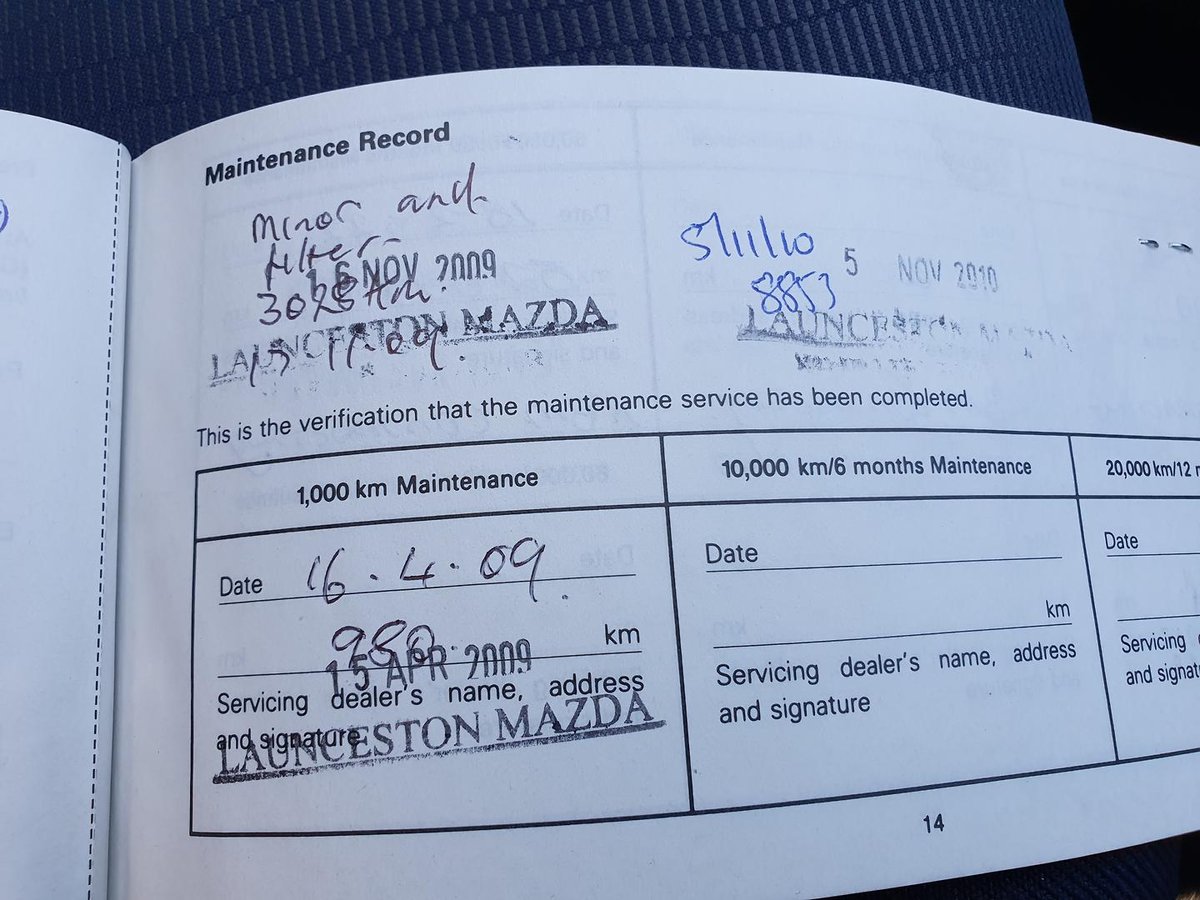 Maintenance Record
Minor and
filter
16 NOV 2009
LAUNCESTON MAZDA
5/11/10
8853
5 NOV 2010
LAUNCESTON MAZDA
This is the verification that the maintenance service has been completed.
1,000 km Maintenance
Date 16.4.09
980 km
15 APR 2009
Servicing dealer's name, address
and signature
LAUNCESTON MAZDA
10,000 km/6 months Maintenance
Date
km
Servicing dealer's name, address
and signature
20,000 km/12
Date
Servicing
14